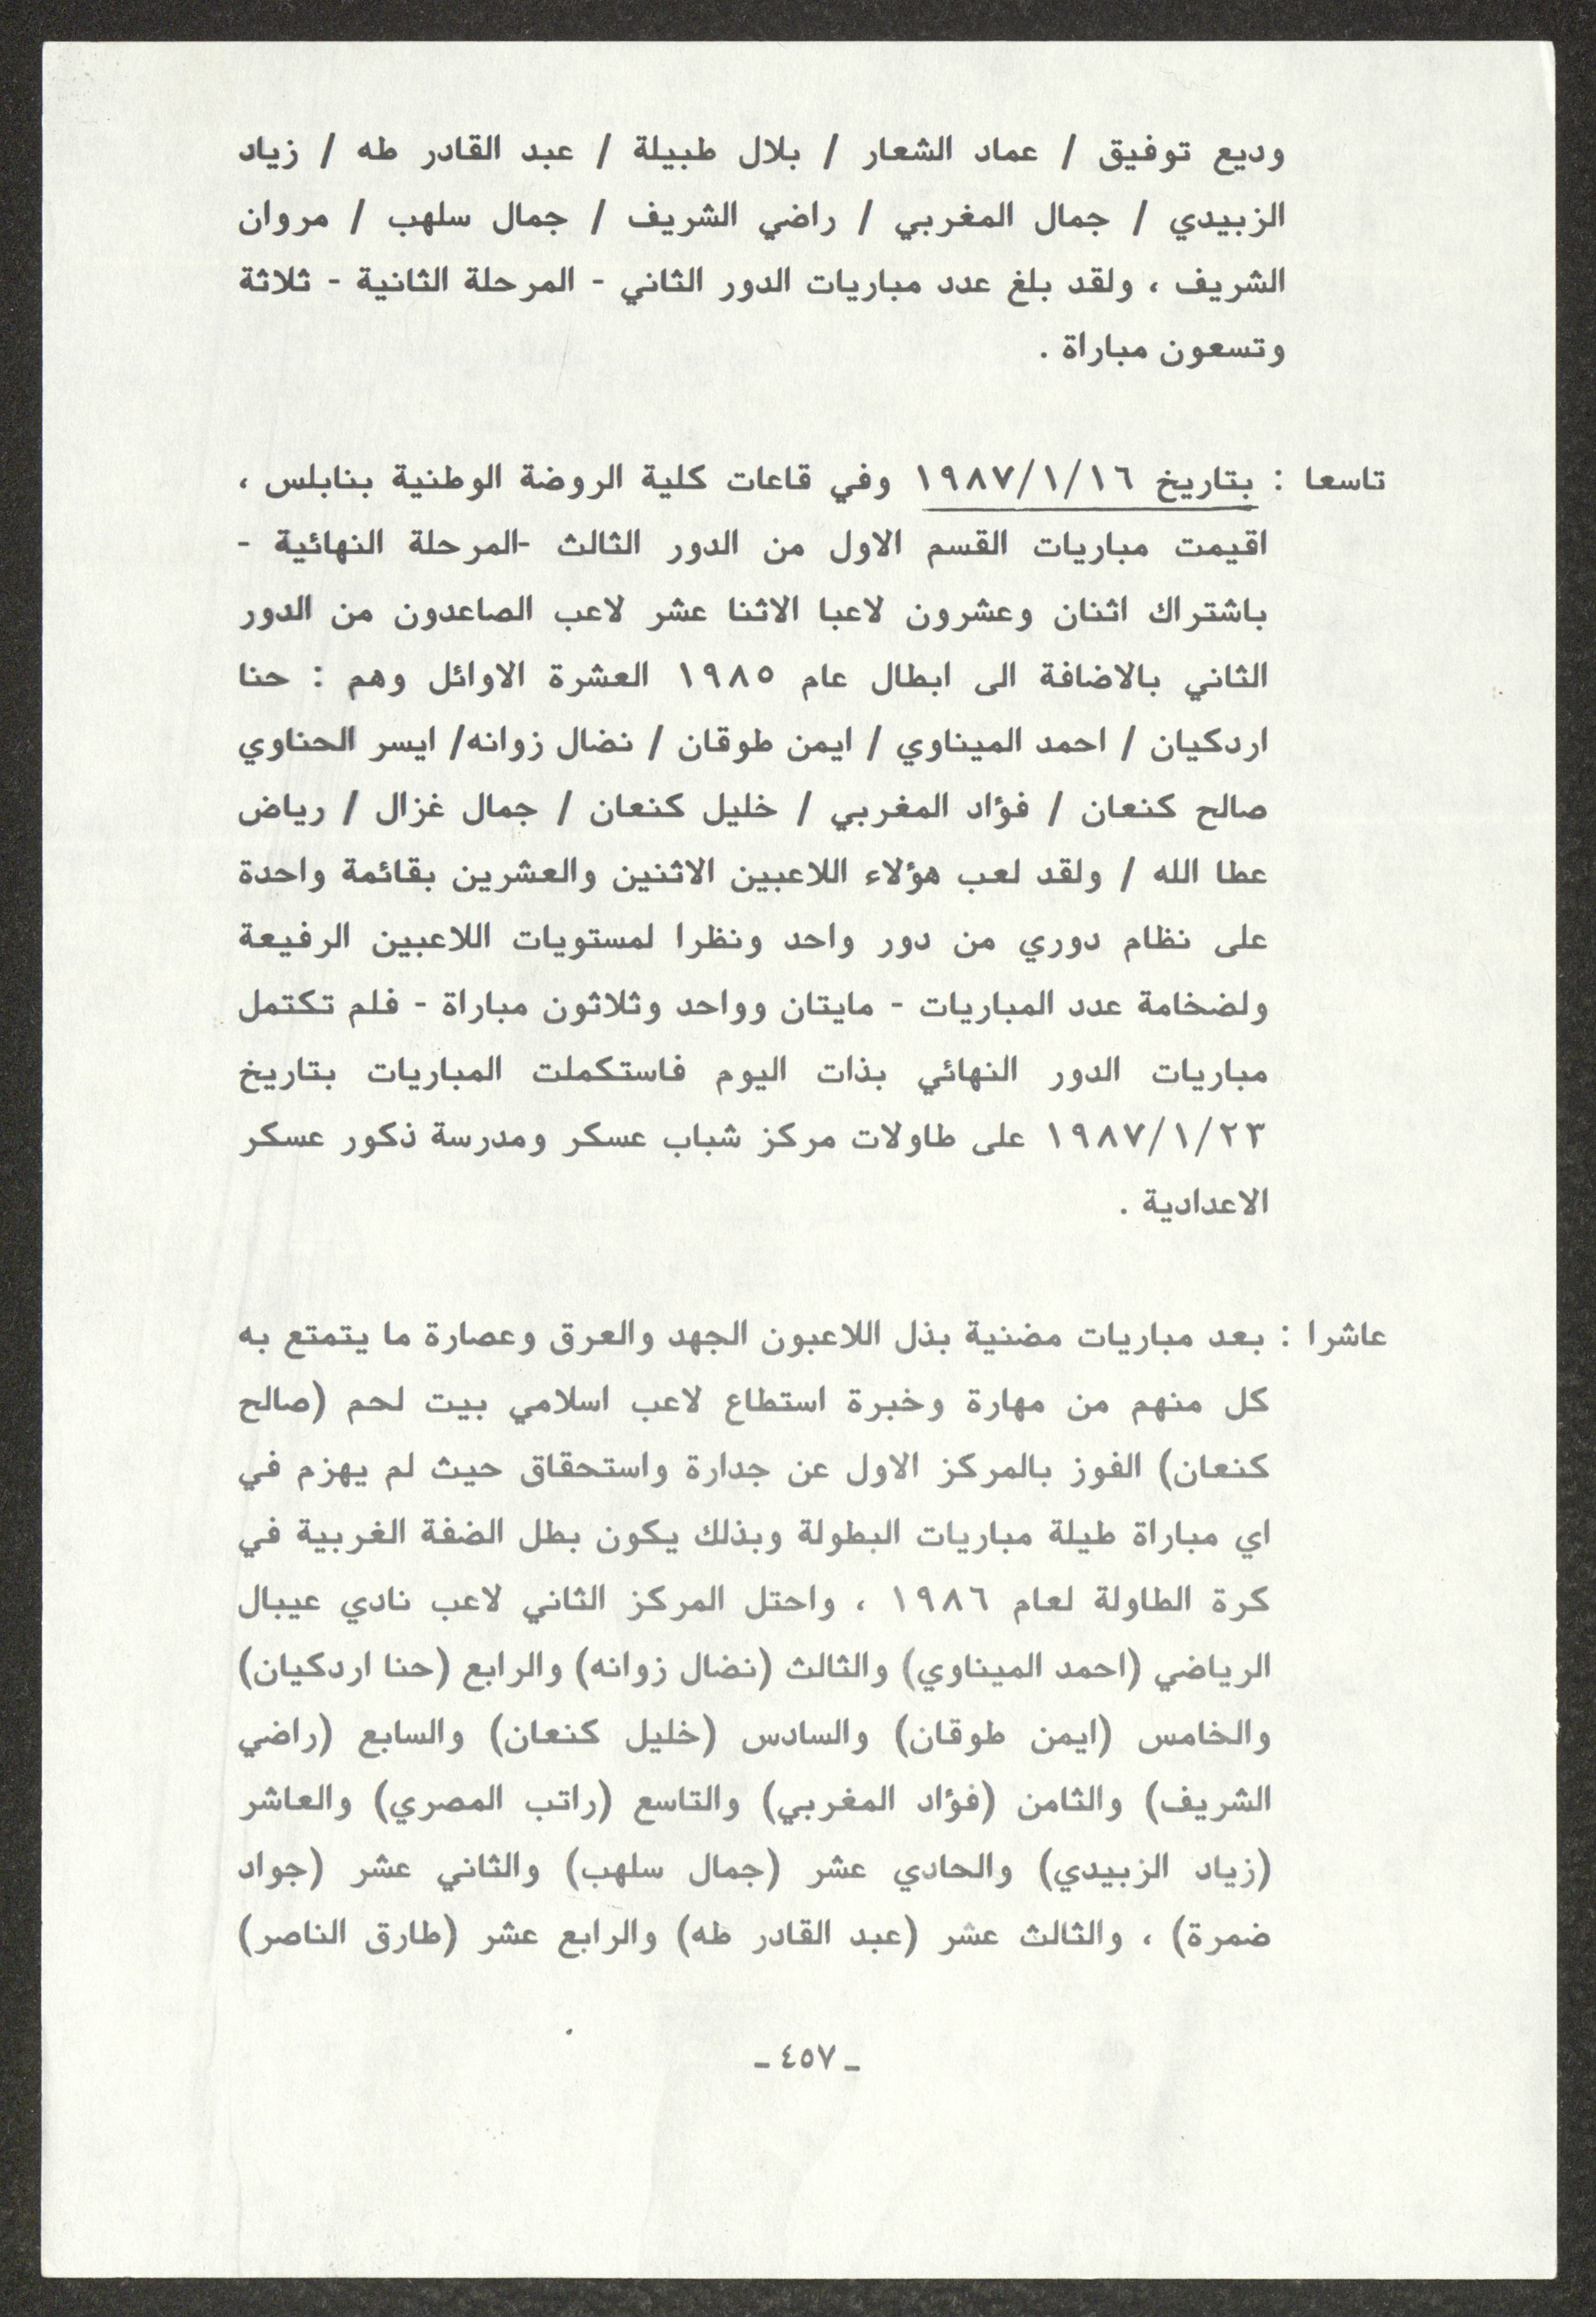 وديع توفيق / عماد الشعار / بلال طبيلة / عبد القادر طه / زياد
الزبيدي / جمال المغربي / راضي الشريف / جمال سلهب / مروان
الشريف ، ولقد بلغ عدد مباريات الدور الثاني - المرحلة الثانية - ثلاثة
وتسعون مباراة .
تاسعا : بتاريخ ١٩٨٧/١/١٦ وفي قاعات كلية الروضة الوطنية بنابلس ،
اقيمت مباريات القسم الاول من الدور الثالث -المرحلة النهائية -
باشتراك اثنان وعشرون لاعبا الاثنا عشر لاعب الصاعدون من الدور
الثاني بالاضافة الى ابطال عام ١٩٨٥ العشرة الاوائل وهم : حنا
اردكيان / احمد الميناوي / ايمن طوقان / نضال زوانه/ ايسر الحناوي
صالح كنعان / فؤاد المغربي / خليل كنعان / جمال غزال / رياض
عطا الله / ولقد لعب هؤلاء اللاعبين الاثنين والعشرين بقائمة واحدة
على نظام دوري من دور واحد ونظرا لمستويات اللاعبين الرفيعة
ولضخامة عدد المباريات - مايتان وواحد وثلاثون مباراة - فلم تكتمل
مباريات الدور النهائي بذات اليوم فاستكملت المباريات بتاريخ
١٩٨٧/١/٢٣ على طاولات مركز شباب عسكر ومدرسة ذكور عسكر
الاعدادية .
عاشرا : بعد مباريات مضنية بذل اللاعبون الجهد والعرق وعصارة ما يتمتع به
كل منهم من مهارة وخبرة استطاع لاعب اسلامي بيت لحم (صالح
كنعان) الفوز بالمركز الاول عن جدارة واستحقاق حيث لم يهزم في
اي مباراة طيلة مباريات البطولة وبذلك يكون بطل الضفة الغربية في
كرة الطاولة لعام ١٩٨٦ ، واحتل المركز الثاني لاعب نادي عيبال
الرياضي (احمد الميناوي) والثالث (نضال زوانه) والرابع (حنا اردكيان)
والخامس (ايمن طوقان) والسادس (خليل كنعان) والسابع (راضي
الشريف) والثامن (فؤاد المغربي) والتاسع (راتب المصري) والعاشر
(زياد الزبيدي) والحادي عشر (جمال سلهب) والثاني عشر (جواد
ضمرة) ، والثالث عشر (عبد القادر طه) والرابع عشر (طارق الناصر)
ـ ٤٥٧ ـ